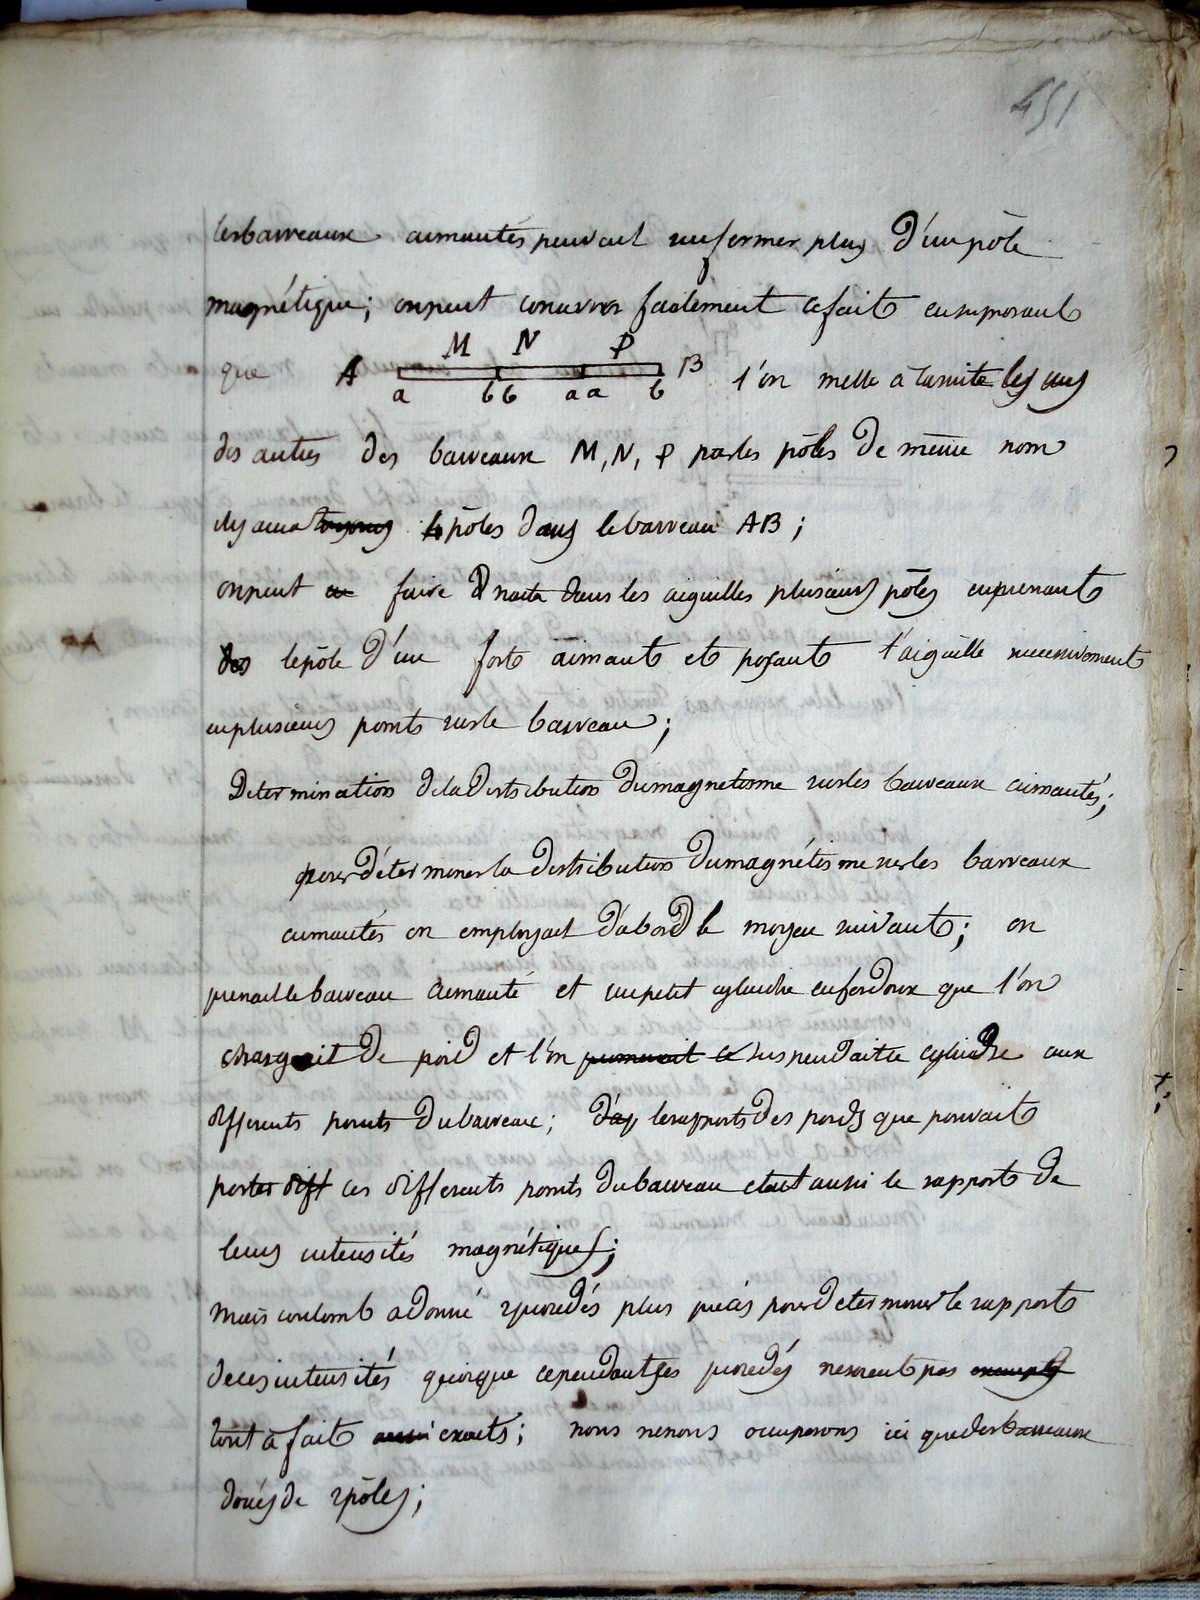 451
les barreaux aimantés peuvent renfermer plus d'un pôle
magnétique; on peut concevoir facilement ce fait en supposant
M N P
que A B l'on mette à la suite les uns
a b b a a b
des autres des barreaux M, N, P par les pôles de même nom
il y aura toujours 4 pôles dans le barreau AB;
on peut en faire naitre dans les aiguilles plusieurs pôles en prenant
des le pôle d'un fort aimant et posant l'aiguille successivement
en plusieurs points sur le barreau;
Determination de la Distribution du magnetisme sur les barreaux aimantés;
pour déterminer la distribution du magnétisme sur les barreaux
aimantés on employait d'abord le moyen suivant; on
prenait le barreau aimanté et un petit cylindre en fer doux que l'on
chargeait de poid et l'on suspendait ce cylindre aux
differents points du barreau; d'ap le rapport des poids que pouvait
porter diff ces differents points du barreau etait aussi le rapport de
leurs intensités magnétiques;
mais coulomb a donné 2 procedés plus précis pour determiner le rapport
de ces intensités quoique cependant ses procedés ne soient pas
tout à fait aussi exacts; nous ne nous occuperons ici que des barreaux
doués de 2 pôles;